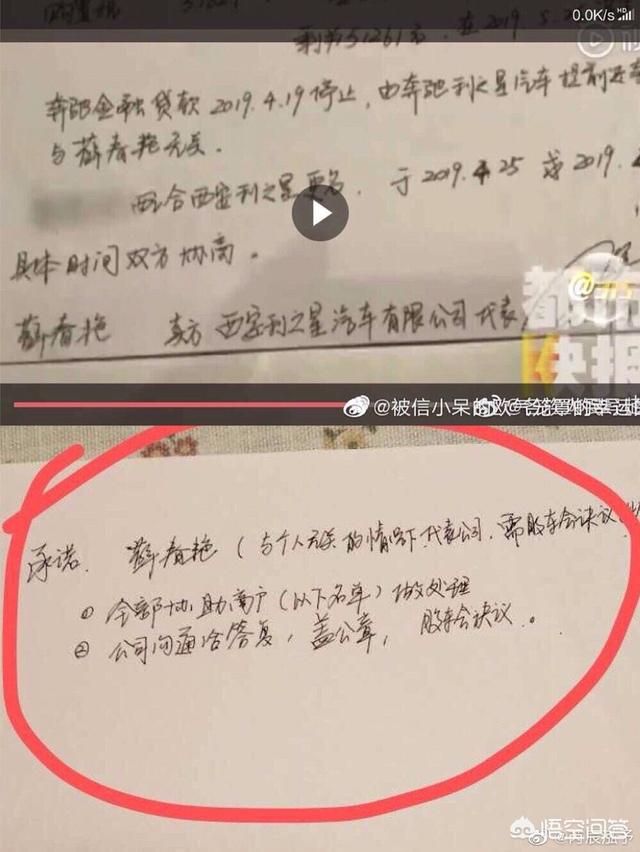 0.0K/s
剩余51261元. 在2019.5.2
奔驰金融贷款 2019.4.19停止,由奔驰利之星汽车提前还
与薛春艳无关.
配合西安利之星更名, 于2019.4.25 或 2019.
具体时间双方协商。
薛春艳 卖方 西安利之星汽车有限公司 代表
@都市快报
@被信小呆的欧气笼罩的幸运
承诺. 薛春艳(与个人无关的情况下代表公司,需股东会决议
① 全部协助商户(以下名单)做处理
② 公司沟通后答复,盖公章, 股东会决议。
悟空问答